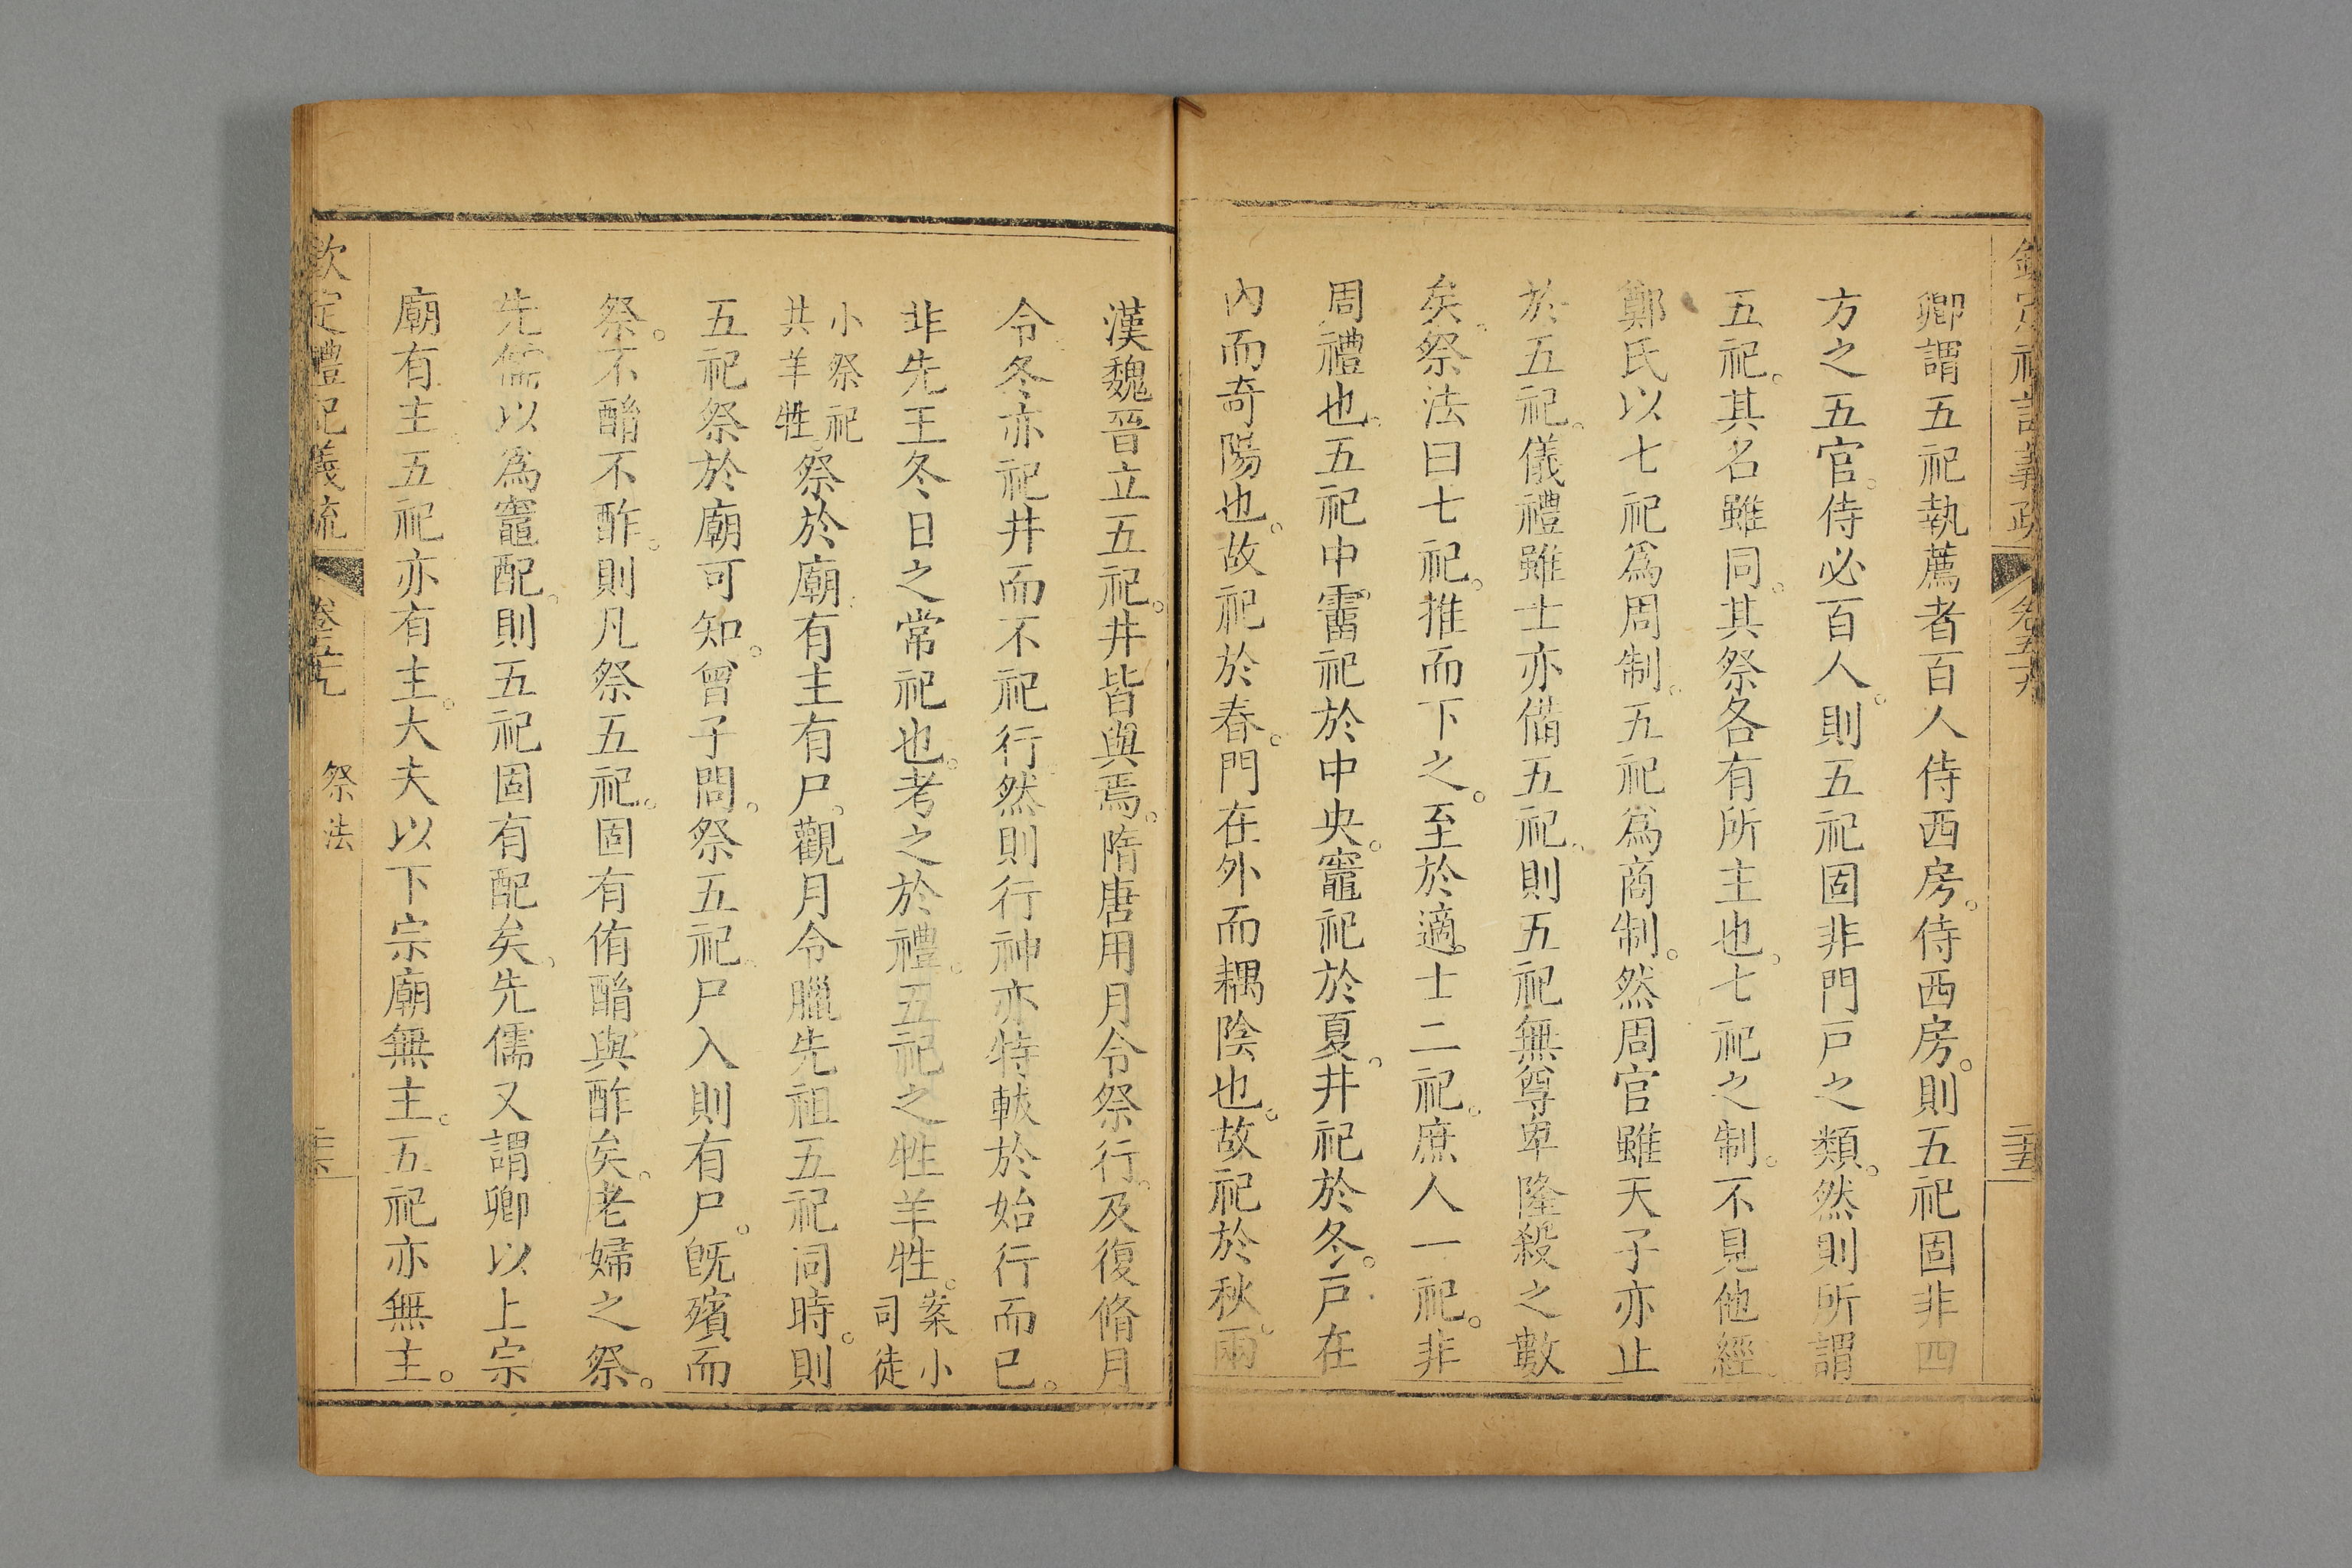 欽定禮記義疏 卷五十九 二十五
卿謂五祀執薦者百人侍西房。侍西房。則五祀固非四
方之五官。侍必百人。則五祀固非門戸之類。然則所謂
五祀。其名雖同。其祭各有所主也。七祀之制。不見他經。
鄭氏以七祀爲周制。五祀爲商制。然周官雖天子亦止
於五祀。儀禮雖士亦備五祀。則五祀無尊卑隆殺之數
矣。祭法曰七祀。推而下之。至於適士二祀。庶人一祀。非
周禮也。五祀中霤祀於中央。竈祀於夏。井祀於冬。戸在
內而奇陽也。故祀於春。門在外而耦陰也。故祀於秋。兩
漢魏晉立五祀。井皆與焉。隋唐用月令祭行。及復脩月
令。冬亦祀井而不祀行。然則行神亦特軷於始行而已。
非先王冬日之常祀也。考之於禮。五祀之牲羊牲。案小
司徒
小祭祀
共羊牲。祭於廟。有主有尸。觀月令臘先祖五祀同時。則
五祀祭於廟可知。曾子問。祭五祀。尸入則有尸。旣殯而
祭。不酳不酢。則凡祭五祀。固有侑酳與酢矣。老婦之祭。
先儒以爲竈配。則五祀固有配矣。先儒又謂卿以上宗
廟有主。五祀亦有主。大夫以下宗廟無主。五祀亦無主。
欽定禮記義疏 卷五十九 祭法